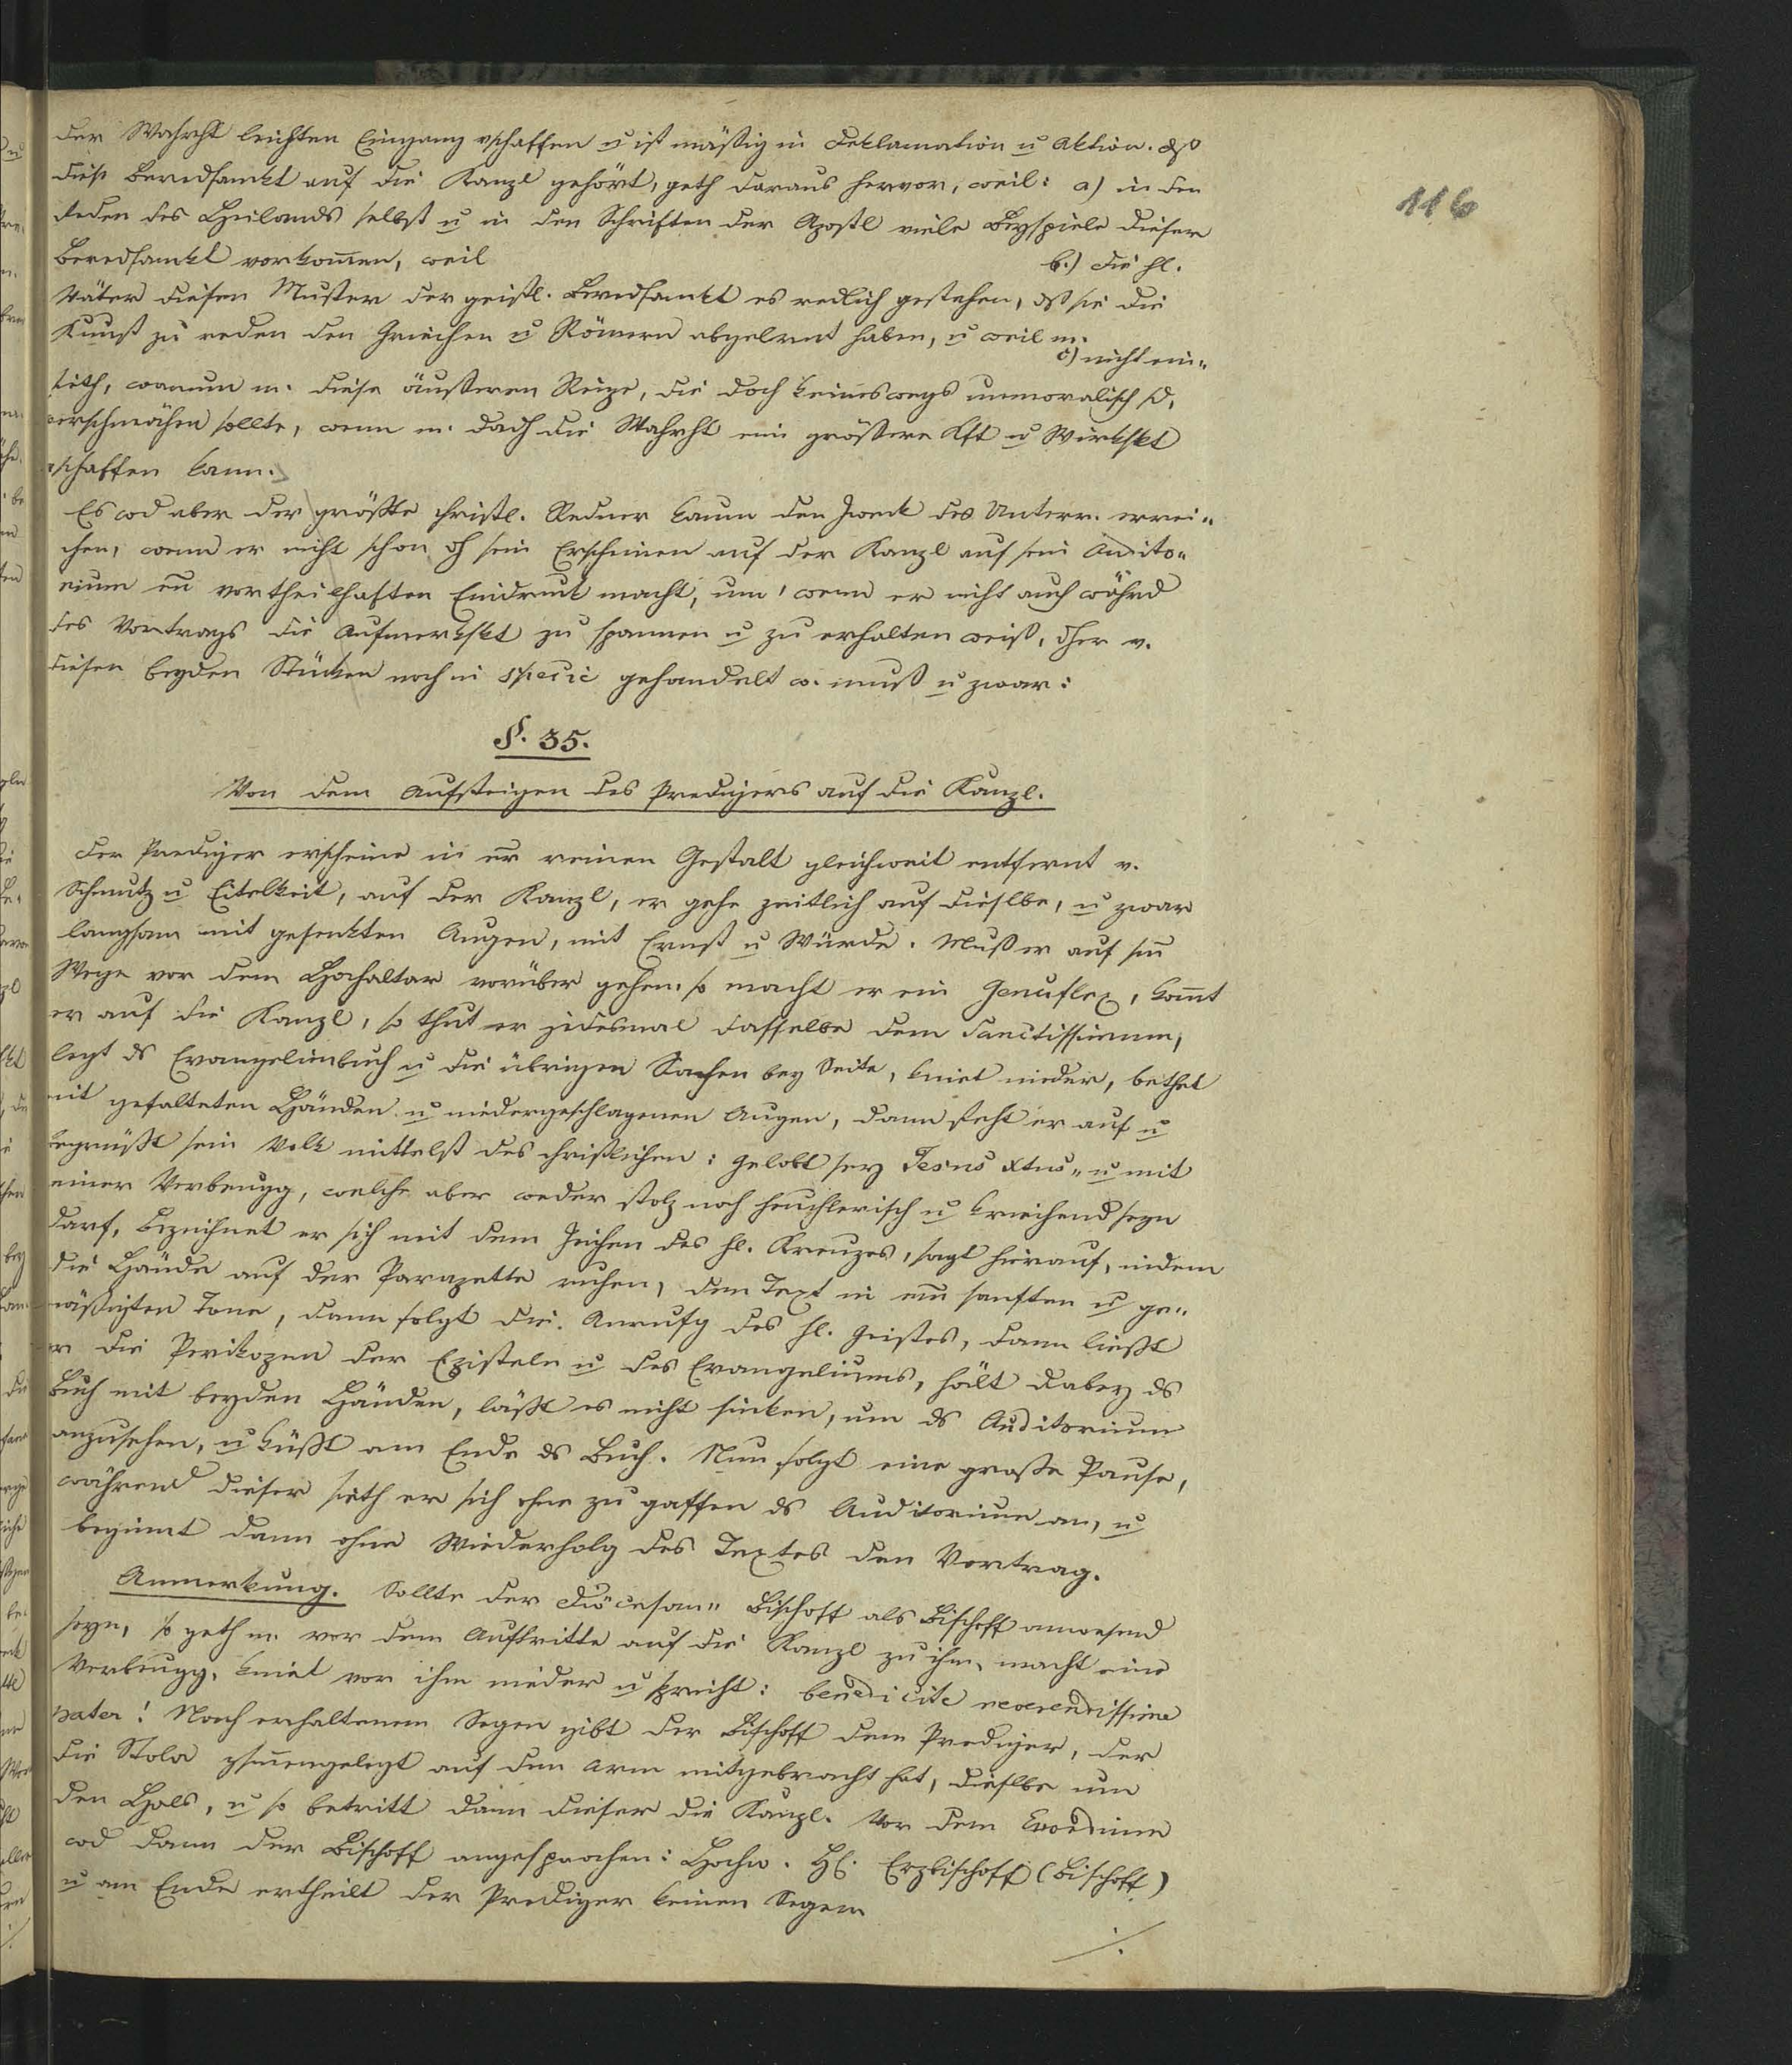 116
der Wahrht leichten Eingang vschaffen u ist mäßig in Deklamation u Aktion. dß
diese Beredsamkt auf die Kanzl gehört, geth daraus hervor, weil: a) in den
Reden des Heilands selbst u in den Schriften der Apostl viele Beyspiele dieser
Beredsamkt vorkom̄en, weil b.) die hl.
Väter diesen Muster der geistl. Beredsamkt es redlich gestehen, dß sie die
Kunst zu reden den Griechen u Römern abgelernt haben, u weil m.
c) nicht ein„
sieth, warum m. diese äußeren Reize, die doch keineswegs unmoralisch sd,
verschmähen sollte, wenn m. dach die Wahrht ein größere Kft u Wirkskt
vschaffen kann.
Es wd aber der größte christl. Redner kaum den Zweck des Unterr. errei„
chen, wenn er nicht schon dh sein Erscheinen auf der Kanzl auf sein Audito„
rium en̄ vortheilhaften Eindruck macht, und wenn er nicht auch währd
des Vortrags die Aufmerkskt zu spannen u zu erhalten weiß, dher v.
diesen beyden Stücken noch in specie gehandelt w. muß u zwar:
§. 35.
Von dem Aufsteigen des Predigers auf die Kanzl.
Der Prediger erscheine in er̄ reinen Gestalt gleichweit entfernt v.
Schmutz u Eitelkeit, auf der Kanzl, er gehe zeitlich auf dieselbe, u zwar
langsam mit gesenkten Augen, mit Ernst u Würde. Muß er auf sein̄
Wege vor dem Hochaltar vorüber gehen, so macht er ein Genuflex, kom̄t
er auf die Kanzl, so thut er jedesmal dasselbe dem Sanctissimum,
legt ds Evangelienbuch u die übrigen Sachen bey Seite, kniet nieder, bethet
mit gefalteten Händen u niedergeschlagenen Augen, dann steht er auf u
begrüßt sein Volk mittelst des christlichen: Gelobt sey Jesus Xtus„ u mit
einer Verbeugg, welche aber weder stolz noch heuchlerisch u kriechend seyn
darf, bezeichnet er sich mit dem Zeichen des hl. Kreuzes, sagt hierauf, indem
die Hände auf der Parapette ruhen, den Text in ein̄ sanften u ge„
mäßigten Tone, dann folgt die Anrufg des hl. Geistes, dann ließt
er die Perikopen der Episteln u des Evangeliums, hält dabey ds
Buch mit beyden Händen, läßt es nicht sinken, um ds Auditorium
anzusehen, u küßt am Ende ds Buch. Nun folgt eine große Pause,
während dieser sieth er sich ohne zu gaffen ds Auditorium an, u
beginnt dann ohne Wiederholg des Textes den Vortrag.
Anmerkung. Sollte der Diöcesan„ Bischoff als Bischoff anwesend
seyn, so geth m. vor dem Auftritte auf die Kanzl zu ihm, macht eine
Verbeugg, kniet vor ihm nieder u spricht: benedicite reverendissime
pater! Nach erhaltenem Segen gibt der Bischoff dem Prediger, der
die Stola zsm̄engelegt auf dem Arm mitgebracht hat, dieselbe um
den Hals, u so betritt dann dieser die Kanzl. Vor dem Exordium
wd dann der Bischoff angesprochen: Hochw. H. Erzbischoff (Bischoff)
u am Ende ertheilt der Prediger keinen Segen
./.